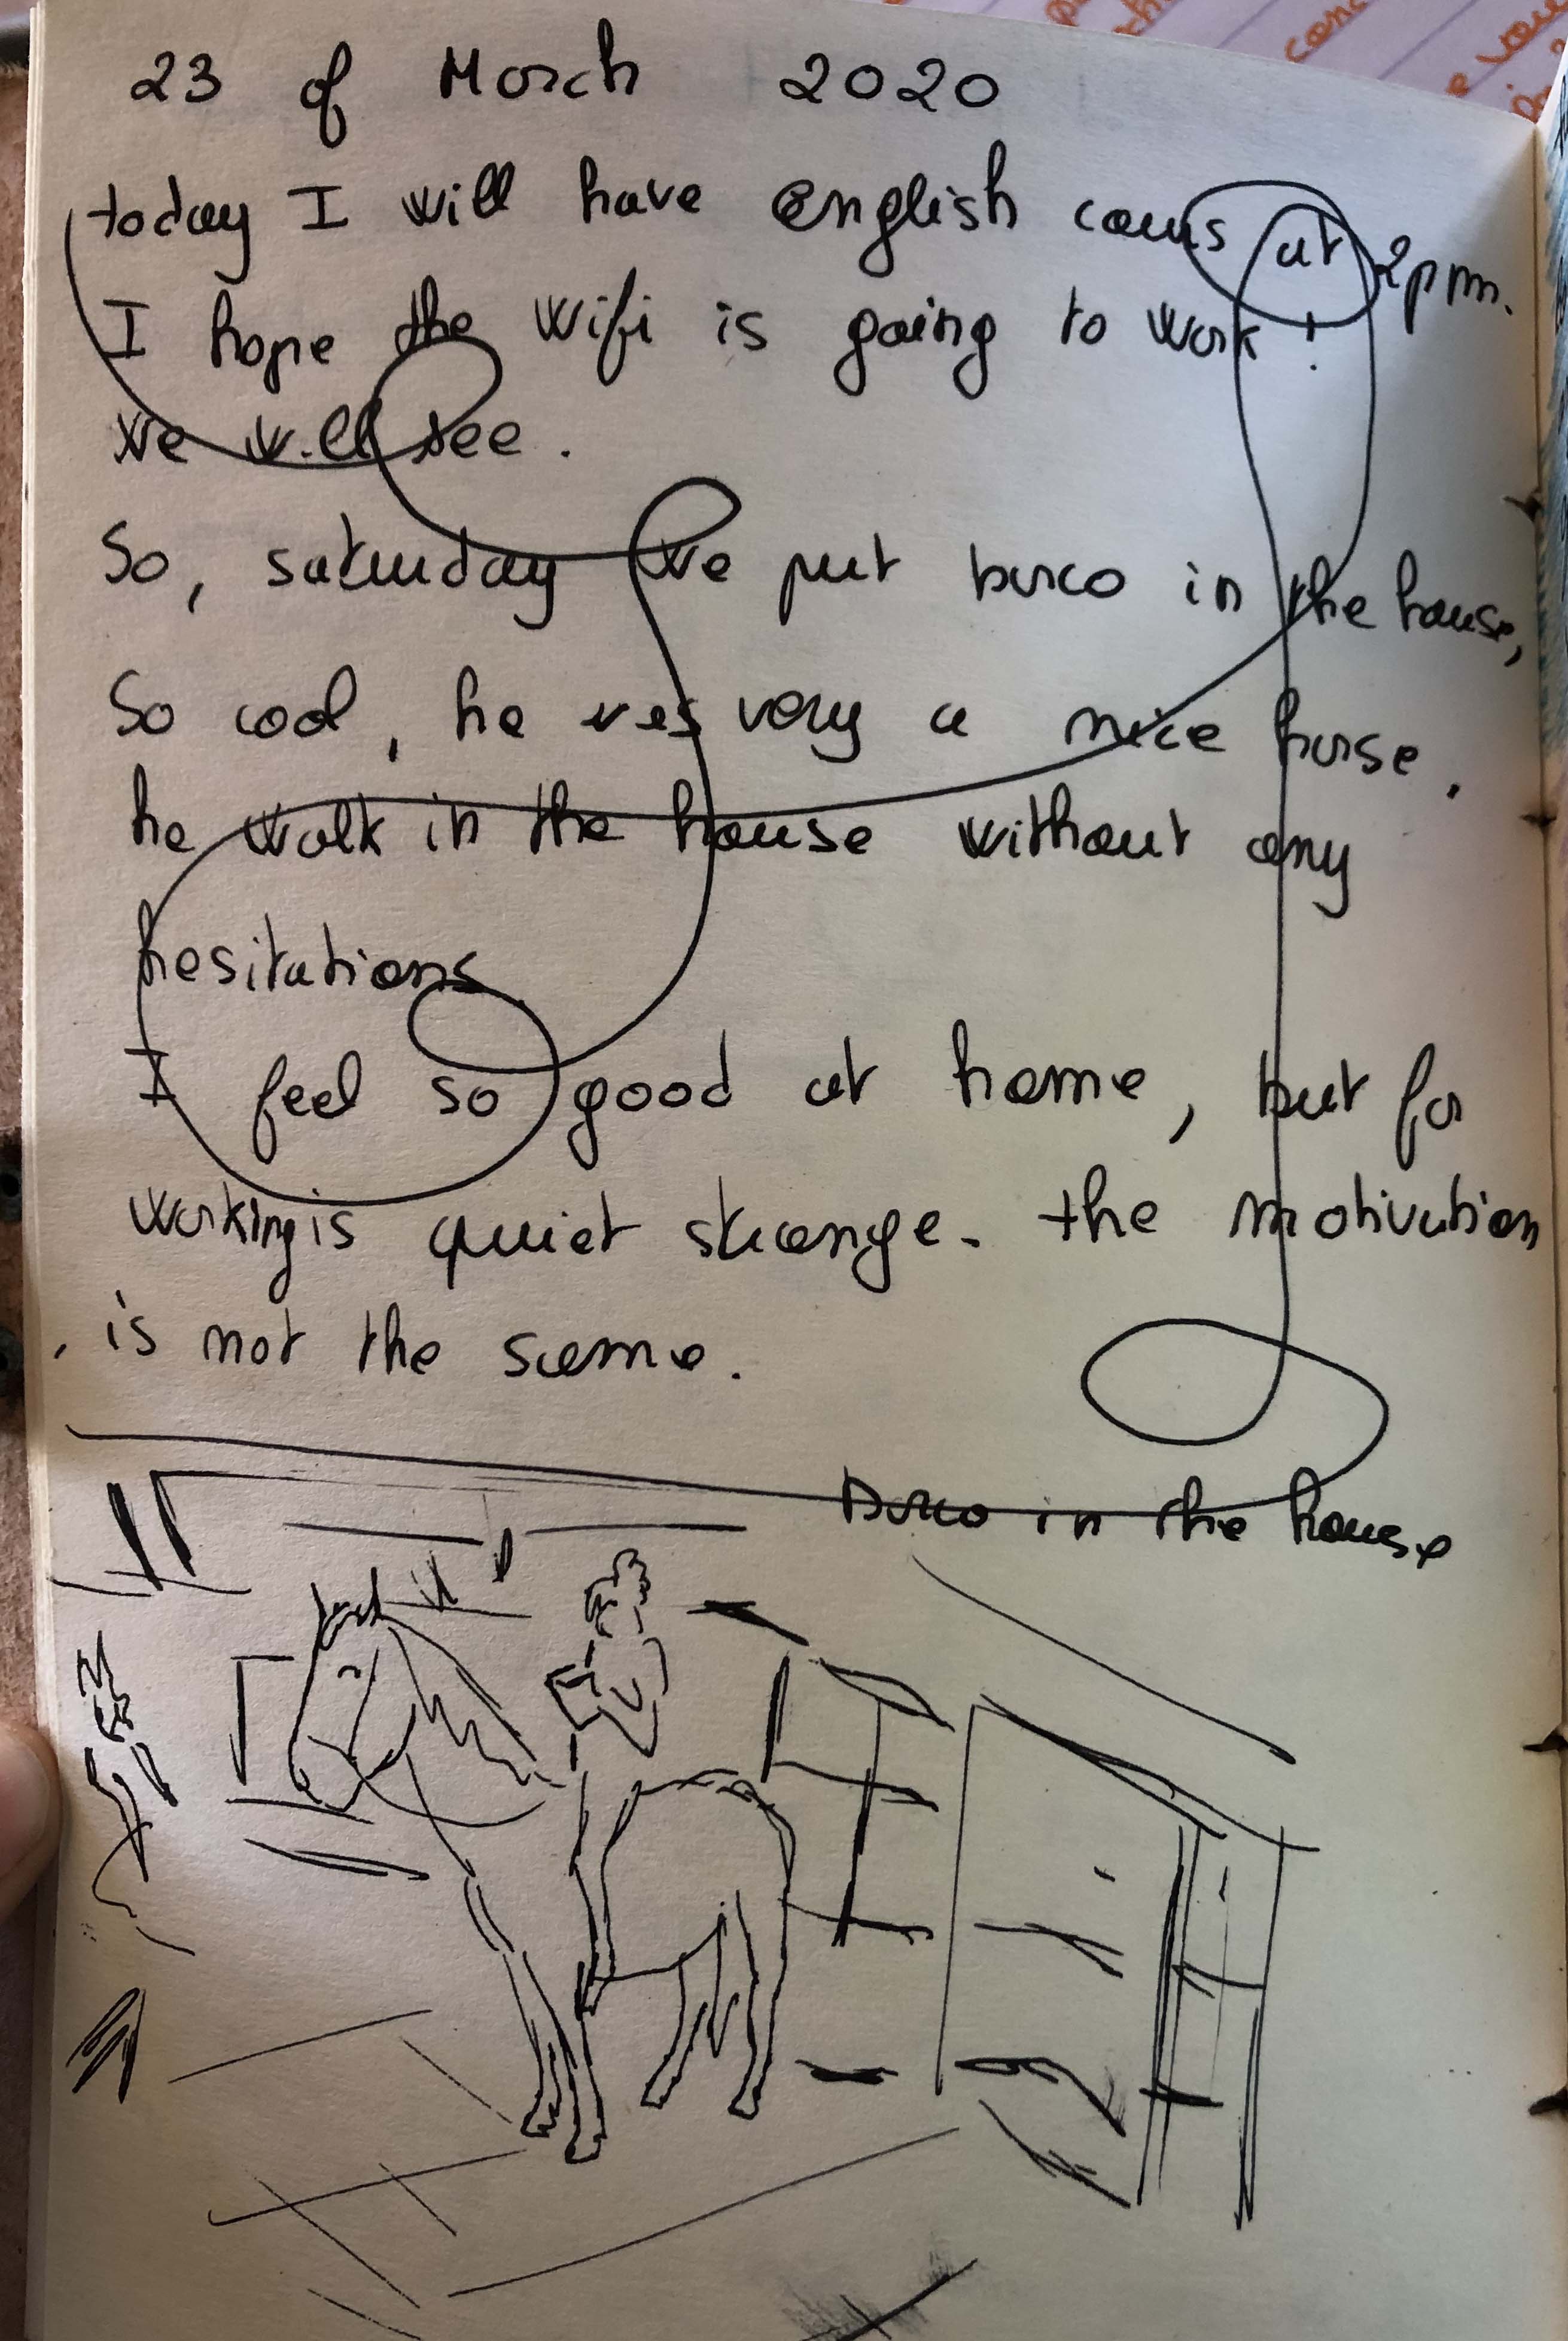 23 of March 2020
today I will have english cours at 2pm.
I hope the wifi is going to work !
we will see.
So, saturday we put burco in the house,
So cool, he very a nice horse.
he walk in the house without any
hesitations
I feel so good at home, but for
working is quiet strange. the motivation
is not the same.
Burco in the house